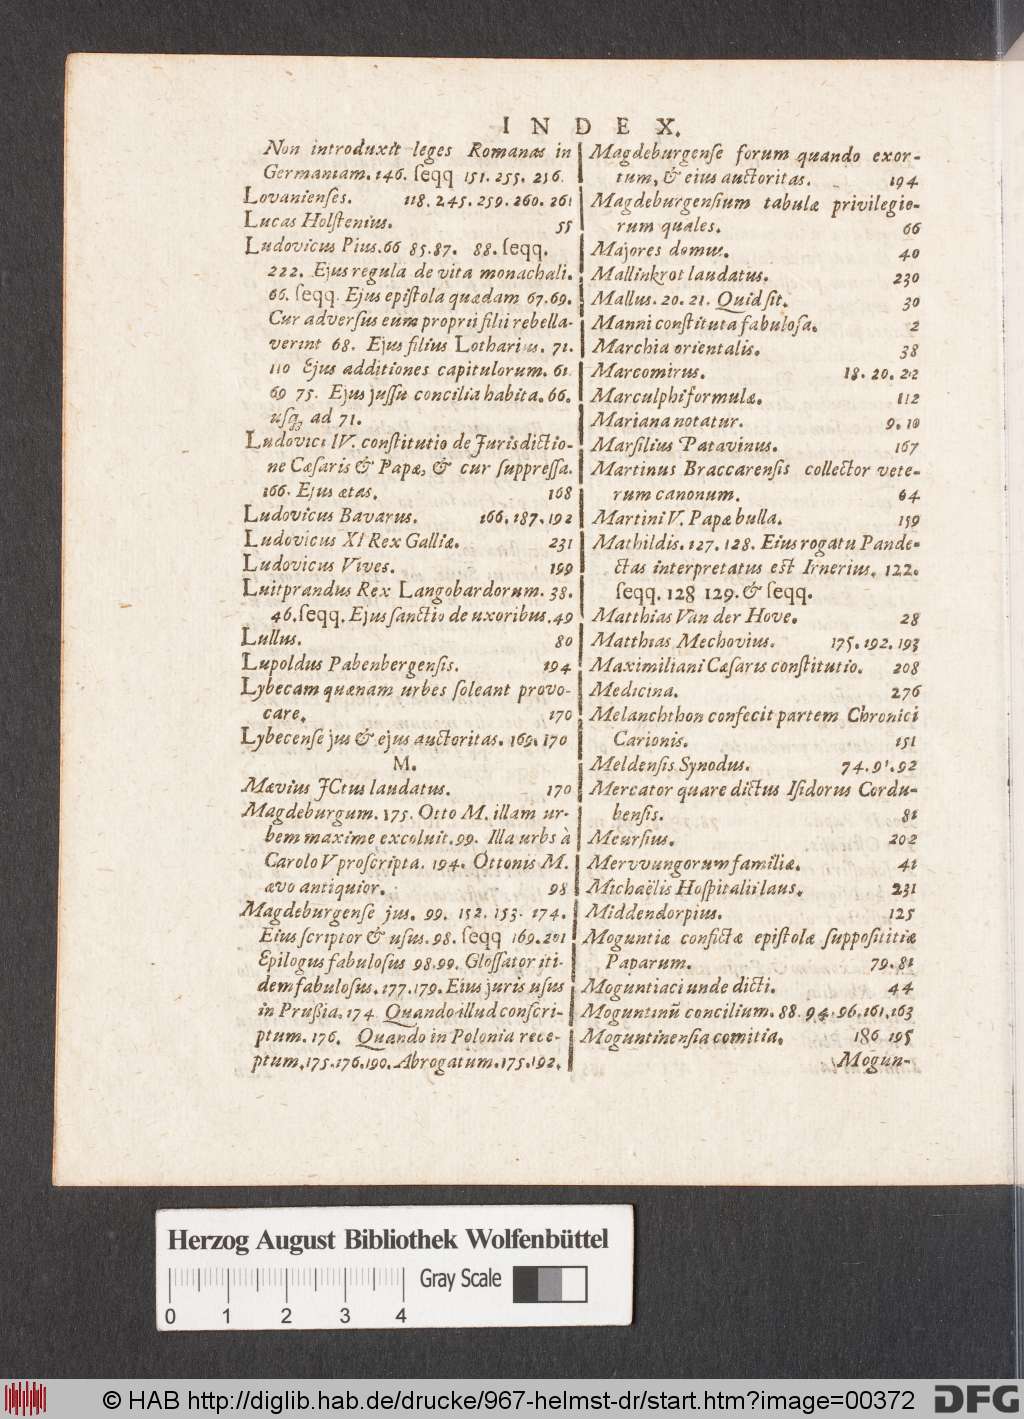 INDEX.
Non introduxit leges Romanas in
Germaniam. 146. seqq 151. 255. 256.
Lovanienses. 118. 245. 259. 260. 261
Lucas Holstenius. 55
Ludovicus Pius. 66 85. 87. 88. seqq.
222. Ejus regula de vita monachali.
66. seqq. Ejus epistola quædam 67. 69.
Cur adversus eum proprii filii rebella-
verint 68. Ejus filius Lotharius. 71.
110 Ejus additiones capitulorum. 61.
69 75. Ejus jussu concilia habita. 66.
usq; ad 71.
Ludovici IV. constitutio de Jurisdictio-
ne Cæsaris & Papæ, & cur suppressa.
166. Ejus ætas. 168
Ludovicus Bavarus. 166. 187. 192
Ludovicus XI Rex Galliæ. 231
Ludovicus Vives. 199
Luitprandus Rex Langobardorum. 38.
46. seqq. Ejus sanctio de uxoribus. 49
Lullus. 80
Lupoldus Pabenbergensis. 194
Lybecam quænam urbes soleant provo-
care. 170
Lybecense jus & ejus auctoritas. 169. 170
M.
Mævius JCtus laudatus. 170
Magdeburgum. 175. Otto M. illam ur-
bem maxime excoluit. 99. Illa urbs à
Carolo V proscripta. 194. Ottonis M.
ævo antiquior. 98
Magdeburgense jus. 99. 152. 153. 174.
Eius scriptor & usus. 98. seqq 169. 201
Epilogus fabulosus 98. 99. Glossator iti-
dem fabulosus. 177. 179. Eius juris usus
in Prußia. 174 Quando illud conscri-
ptum. 176. Quando in Polonia rece-
ptum. 175. 176. 190. Abrogatum. 175. 192.
Magdeburgense forum quando exor-
tum, & eius auctoritas. 194
Magdeburgensium tabulæ privilegio-
rum quales. 66
Majores domus. 40
Mallinkrot laudatus. 230
Mallus. 20. 21. Quid sit. 30
Manni constituta fabulosa. 2
Marchia orientalis. 38
Marcomirus. 18. 20. 22
Marculphi formulæ. 112
Mariana notatur. 9. 10
Marsilius Patavinus. 167
Martinus Braccarensis collector vete-
rum canonum. 64
Martini V. Papæ bulla. 159
Mathildis. 127. 128. Eius rogatu Pande-
ctas interpretatus est Irnerius. 122.
seqq. 128 129. & seqq.
Matthias Van der Hove. 28
Matthias Mechovius. 175. 192. 193
Maximiliani Cæsaris constitutio. 208
Medicina. 276
Melanchthon confecit partem Chronici
Carionis. 151
Meldensis Synodus. 74. 91. 92
Mercator quare dictus Isidorus Cordu-
bensis. 81
Meursius. 202
Mervvungorum familiæ. 41
Michaëlis Hospitalii laus. 231
Middendorpius. 125
Moguntiæ confictæ epistolæ supposititiæ
Paparum. 79. 81
Moguntiaci unde dicti. 44
Moguntinū concilium. 88. 94. 96. 161. 163
Moguntinensia comitia. 186 195
Mogun-
Herzog August Bibliothek Wolfenbüttel
Gray Scale
0 1 2 3 4
© HAB http://diglib.hab.de/drucke/967-helmst-dr/start.htm?image=00372
DFG